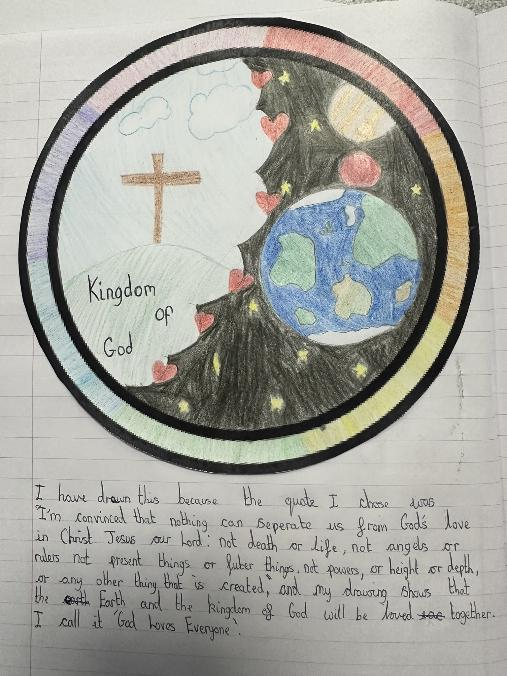 Kingdom
of
God
I have drawn this because the quote I chose was
"I'm convinced that nothing can seperate us from God's love
in Christ Jesus our Lord: not death or life, not angels or
rulers not present things or futer things, not powers, or height or depth,
or any other thing that is created," and my drawing shows that
the Earth and the Kingdom of God will be loved together.
I call it 'God Loves Everyone'.